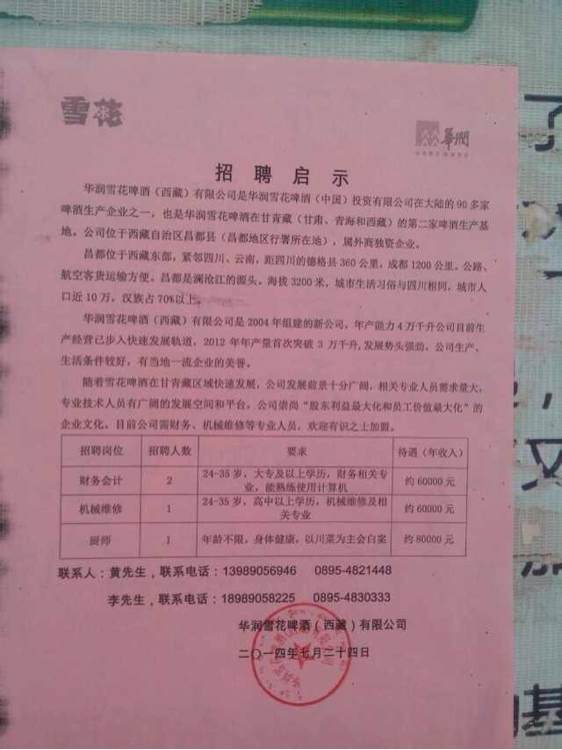 雪花
华润
招聘启示
华润雪花啤酒（西藏）有限公司是华润雪花啤酒（中国）投资有限公司在大陆的90多家
啤酒生产企业之一，也是华润雪花啤酒在甘青藏（甘肃、青海和西藏）的第二家啤酒生产基
地。公司位于西藏自治区昌都县（昌都地区行署所在地），属外商独资企业。
昌都位于西藏东部，紧邻四川、云南，距四川的德格县360公里，成都1200公里。公路、
航空客货运输方便。昌都是澜沧江的源头，海拔3200米，城市生活习俗与四川相同，城市人
口近10万，汉族占70%以上。
华润雪花啤酒（西藏）有限公司是2004年组建的新公司，年产能力4万千升公司目前生
产经营已步入快速发展轨道，2012年年产量首次突破3万千升，发展势头强劲，公司生产、
生活条件较好，有当地一流企业的美誉。
随着雪花啤酒在甘青藏区域快速发展，公司发展前景十分广阔，相关专业人员需求量大，
专业技术人员有广阔的发展空间和平台，公司崇尚“股东利益最大化和员工价值最大化”的
企业文化。目前公司需财务、机械维修等专业人员，欢迎有识之士加盟。
招聘岗位 招聘人数 要求 待遇（年收入）
财务会计 2 24-35岁，大专及以上学历，财务相关专
业，能熟练使用计算机 约60000元
机械维修 1 24-35岁，高中以上学历，机械维修及相
关专业 约60000元
厨师 1 年龄不限，身体健康，以川菜为主会白案 约80000元
联系人：黄先生，联系电话：13989056946 0895-4821448
李先生，联系电话：18989058225 0895-4830333
华润雪花啤酒（西藏）有限公司
二〇一四年七月二十四日
了
又
的基